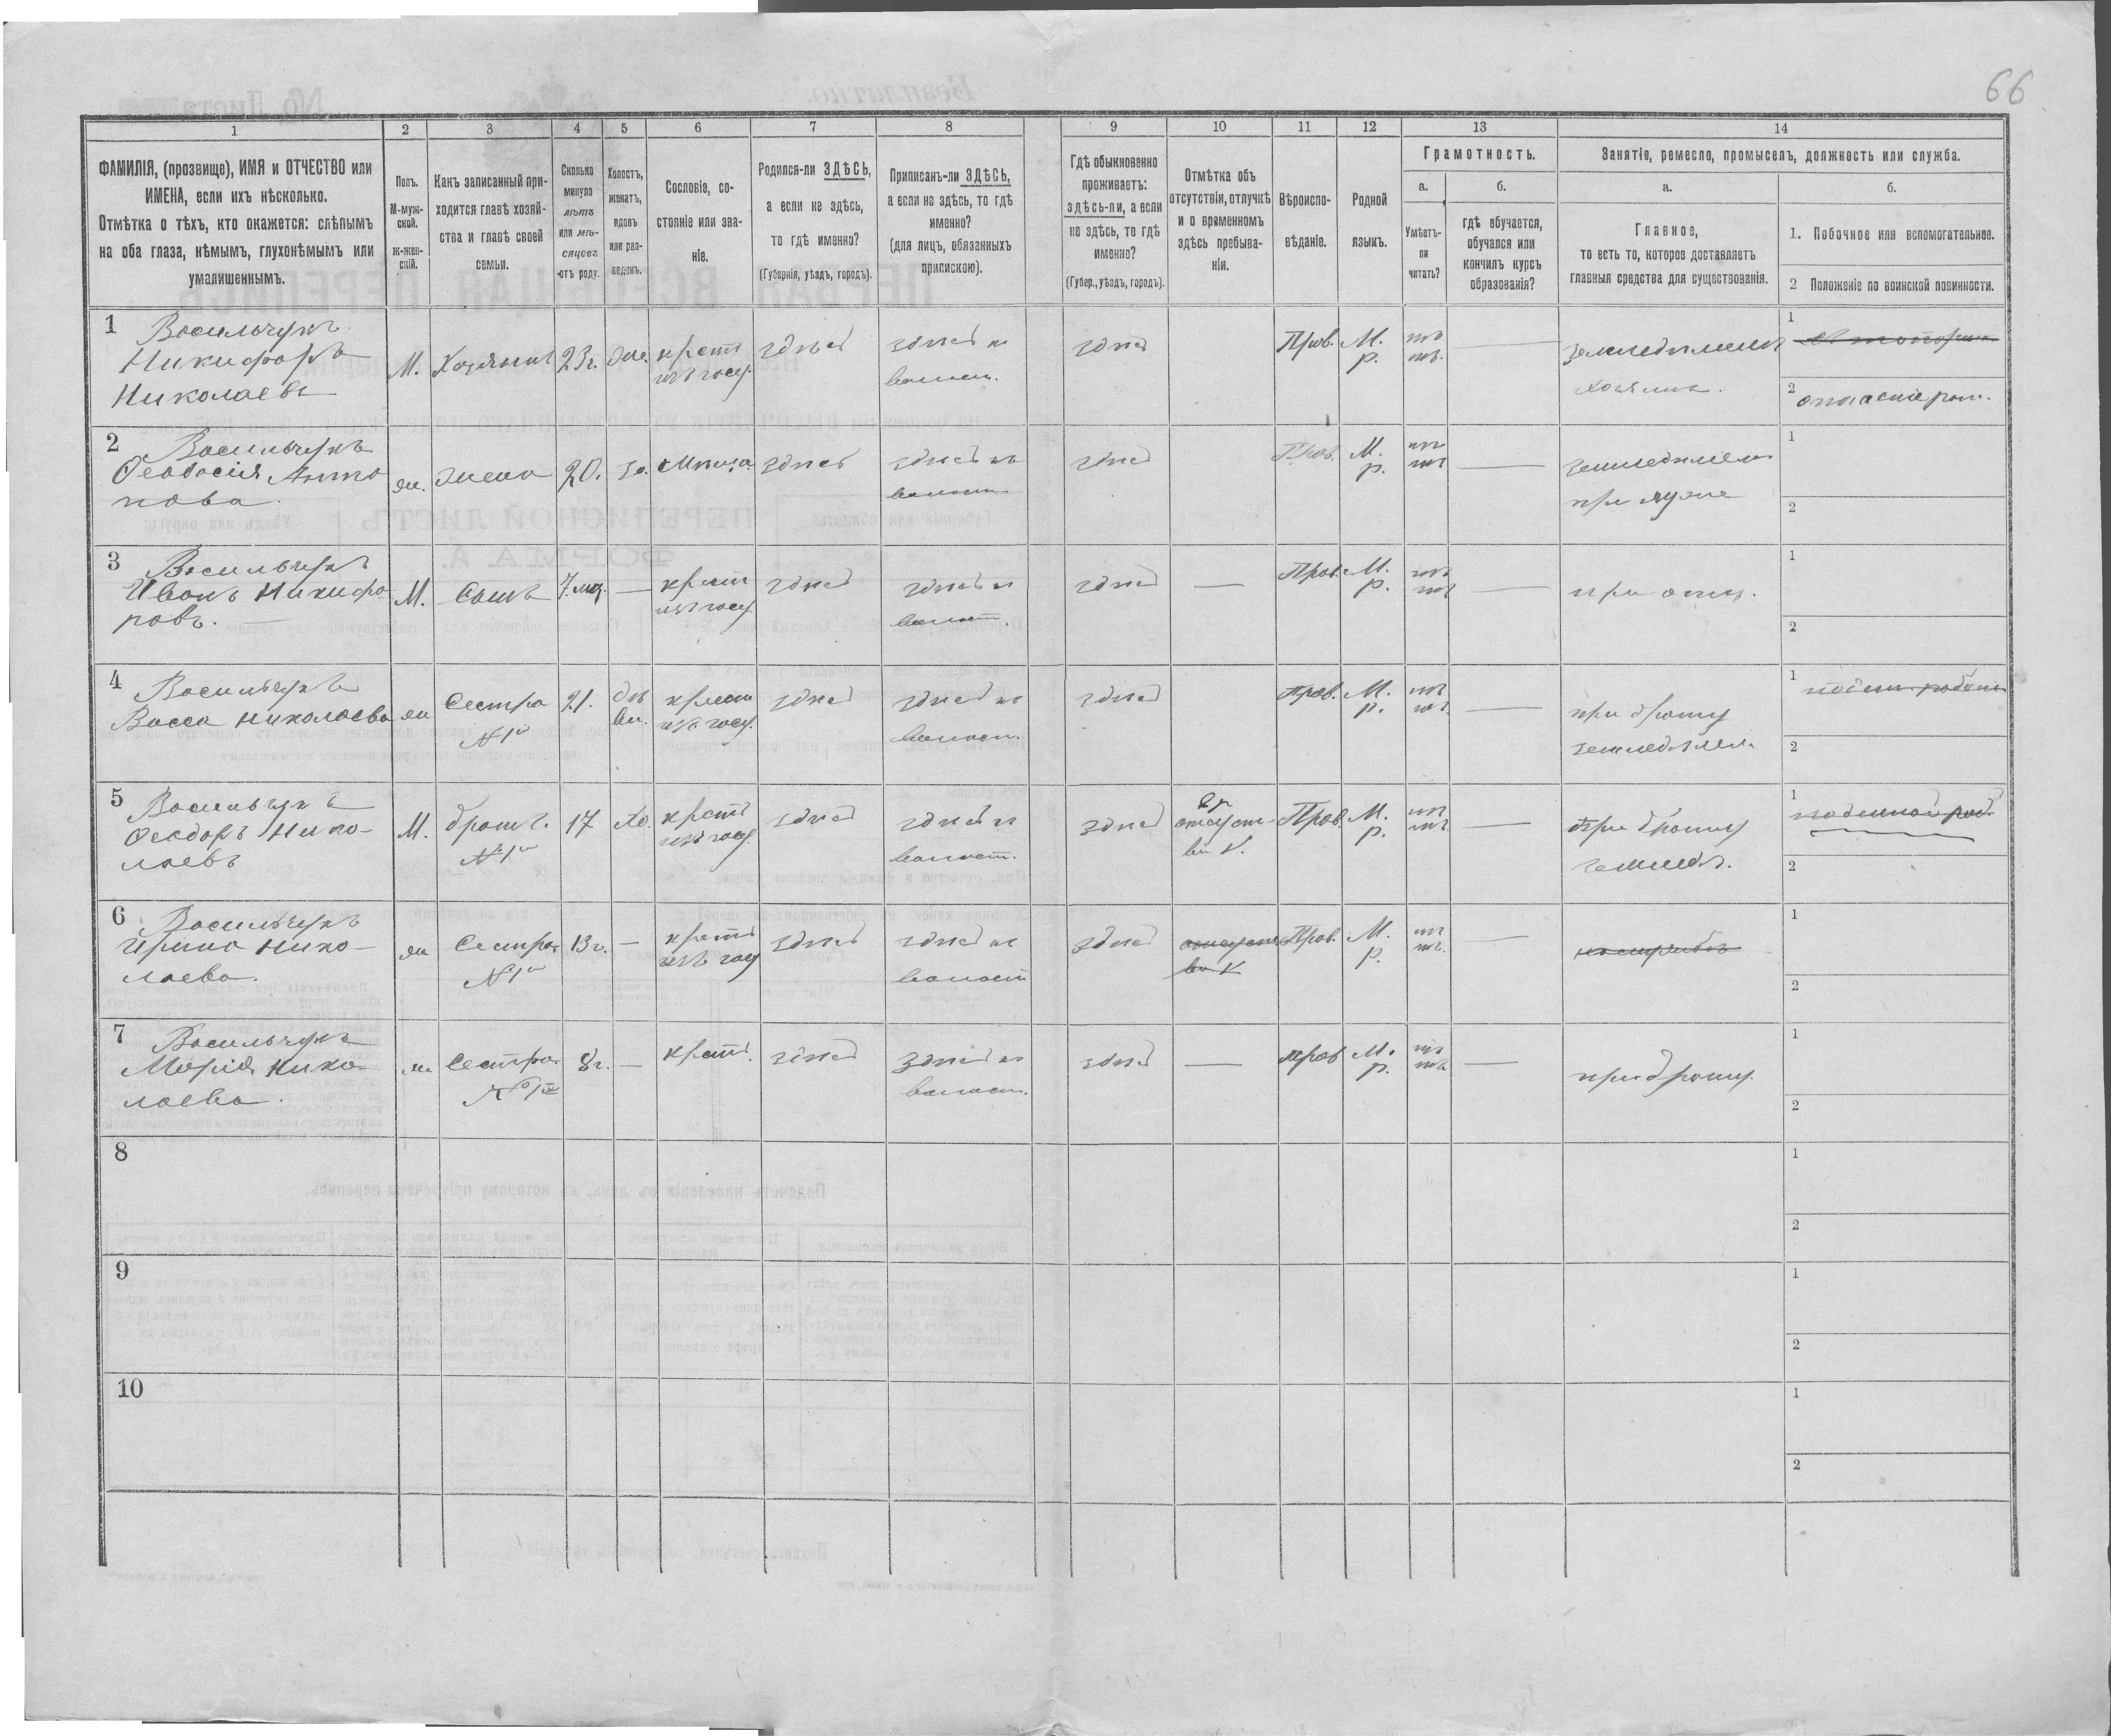 66
1 2 3 4 5 6 7 8 9 10 11 12 13 14
ФАМИЛІЯ, (прозвище), ИМЯ и ОТЧЕСТВО или
ИМЕНА, если ихъ нѣсколько.
Отмѣтка о тѣхъ, кто окажется: слѣпымъ
на оба глаза, нѣмымъ, глухонѣмымъ или
умалишеннымъ.
Полъ.
М-муж-
ской.
ж-жен-
скій.
Какъ записанный при-
ходится главѣ хозяй-
ства и главѣ своей
семьи.
Сколько
минуло
лѣтъ
или мѣ-
сяцевъ
отъ роду.
Холостъ,
женатъ,
вдовъ
или раз-
веденъ.
Сословіе, со-
стояніе или зва-
ніе.
Родился-ли ЗДѢСЬ,
а если не здѣсь,
то гдѣ именно?
(Губернія, уѣздъ, городъ).
Приписанъ-ли ЗДѢСЬ,
а если не здѣсь, то гдѣ
именно?
(для лицъ, обязанныхъ
припискою).
Гдѣ обыкновенно
проживаетъ:
здѣсь-ли, а если
не здѣсь, то гдѣ
именно?
(Губер., уѣздъ, городъ).
Отмѣтка объ
отсутствіи, отлучкѣ
и о временномъ
здѣсь пребыва-
ніи.
Вѣроиспо-
вѣданіе.
Родной
языкъ.
Грамотность.
а.
Умѣетъ-
ли
читать?
б.
гдѣ обучается,
обучался или
кончилъ курсъ
образованія?
Занятіе, ремесло, промыселъ, должность или служба.
а.
Главное,
то есть то, которое доставляетъ
главныя средства для существованія.
б.
1. Побочное или вспомогательное.
2 Положеніе по воинской повинности.
1 Васильчукъ
Никифоръ
Николаевъ
М.
Хозяинъ
23 г.
же.
крест
изъ госу.
здѣсь
здѣсь въ
волост.
здѣсь
Прав.
М.
р.
нѣ
тъ.
—
земледѣлецъ
хозяинъ.
1
2
2 Васильчукъ
Ѳеодосія Анто
нова.
жена
20.
за.
здѣсь
здѣсь въ
волост
здѣсь
Прав.
М.
р.
нѣ
тъ
—
земледѣлец
при мужѣ
1
2
3 Васильчукъ
Иванъ Никифо
ровъ. —
М.
Сынъ
7. мѣ.
—
крест
изъ госу.
здѣсь
здѣсь въ
волост.
здѣсь
—
Прав.
М.
р.
нѣ
тъ
—
при отц.
1
2
4 Васильчукъ
Васса Николаева
Сестра
№ 1го
21.
дѣ
ви.
крест
изъ госу.
здѣсь
здѣсь въ
волост.
здѣсь
Прав.
М.
р.
нѣ
тъ.
—
при брату
земледѣлец.
1
2
5 Васильчукъ
Ѳеодоръ Нико-
лаевъ
М.
братъ.
№ 1го
17
хо.
крест
изъ госу.
здѣсь
здѣсь въ
волост.
здѣсь
Вр
отсутст-
ву
Прав.
М.
р.
нѣ
тъ
—
При брату
землед.
1
2
6 Васильчукъ
Ирина Нико-
лаева.
Сестра
№ 1го
13 г.
—
крест
изъ госу
здѣсь
здѣсь въ
волост
здѣсь
Прав.
М.
р.
нѣ
тъ.
—
1
2
7 Васильчукъ
Марія Нико-
лаева.
Сестра
8 г.
—
крест.
здѣсь
здѣсь въ
волост.
здѣсь
—
прав
М.
р.
нѣ
тъ
—
при брату.
1
2
8
1
2
9
1
2
10
1
2